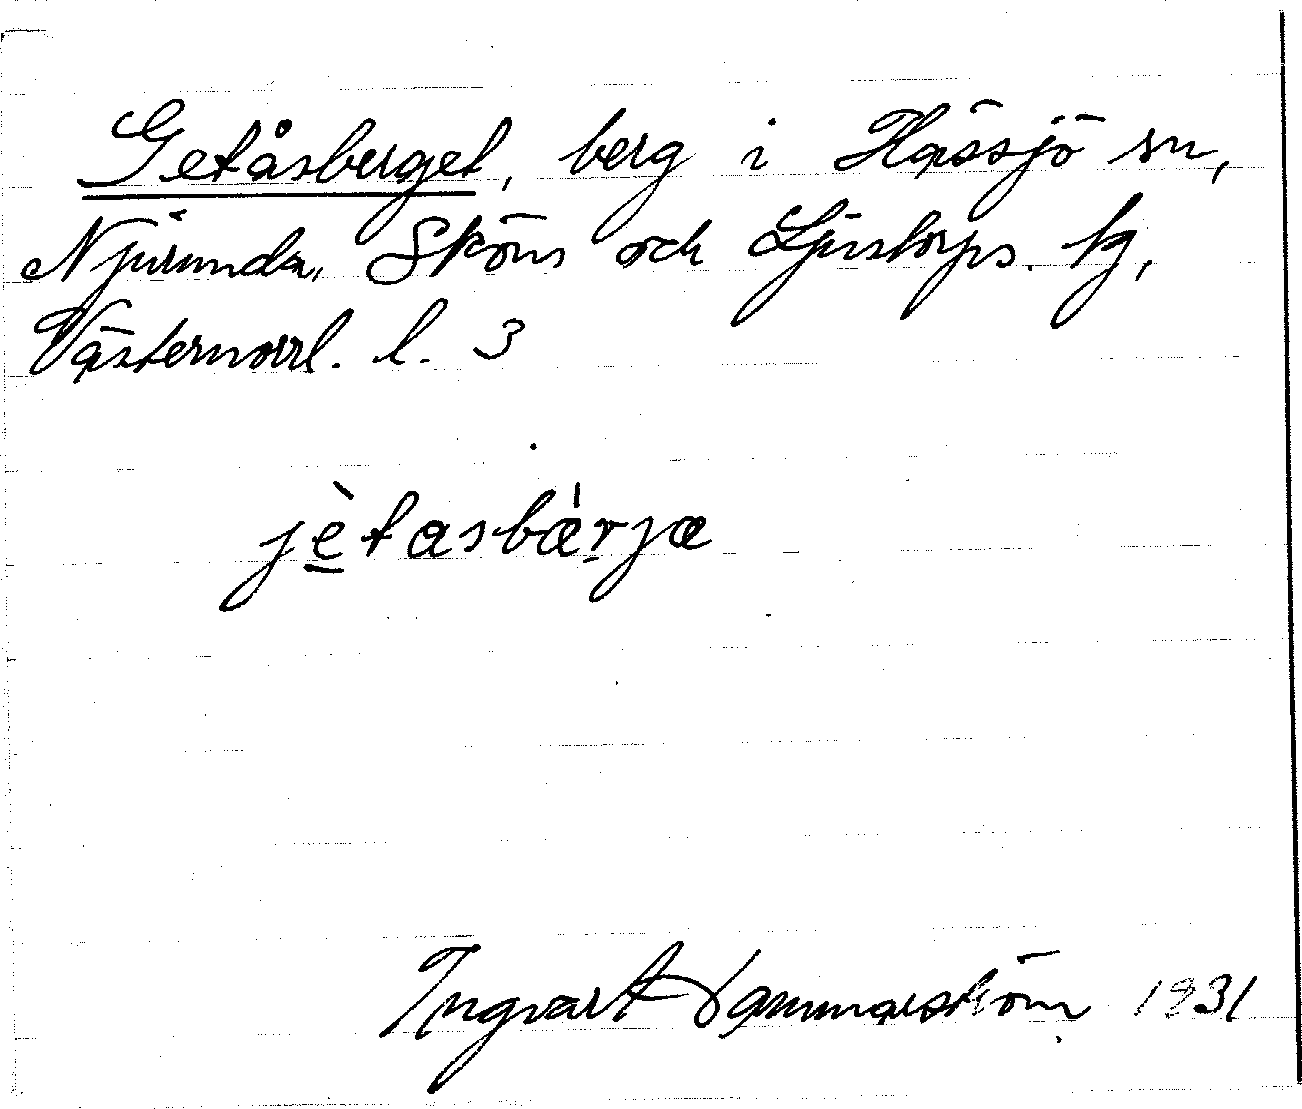 Getåsberget, berg i Hässjö sn,
Njurunda, Sköns och Ljustorps. tg,
Västernorrl. l. 3
jètasbæ̀rjæ
Ingvart Hammarström 1931